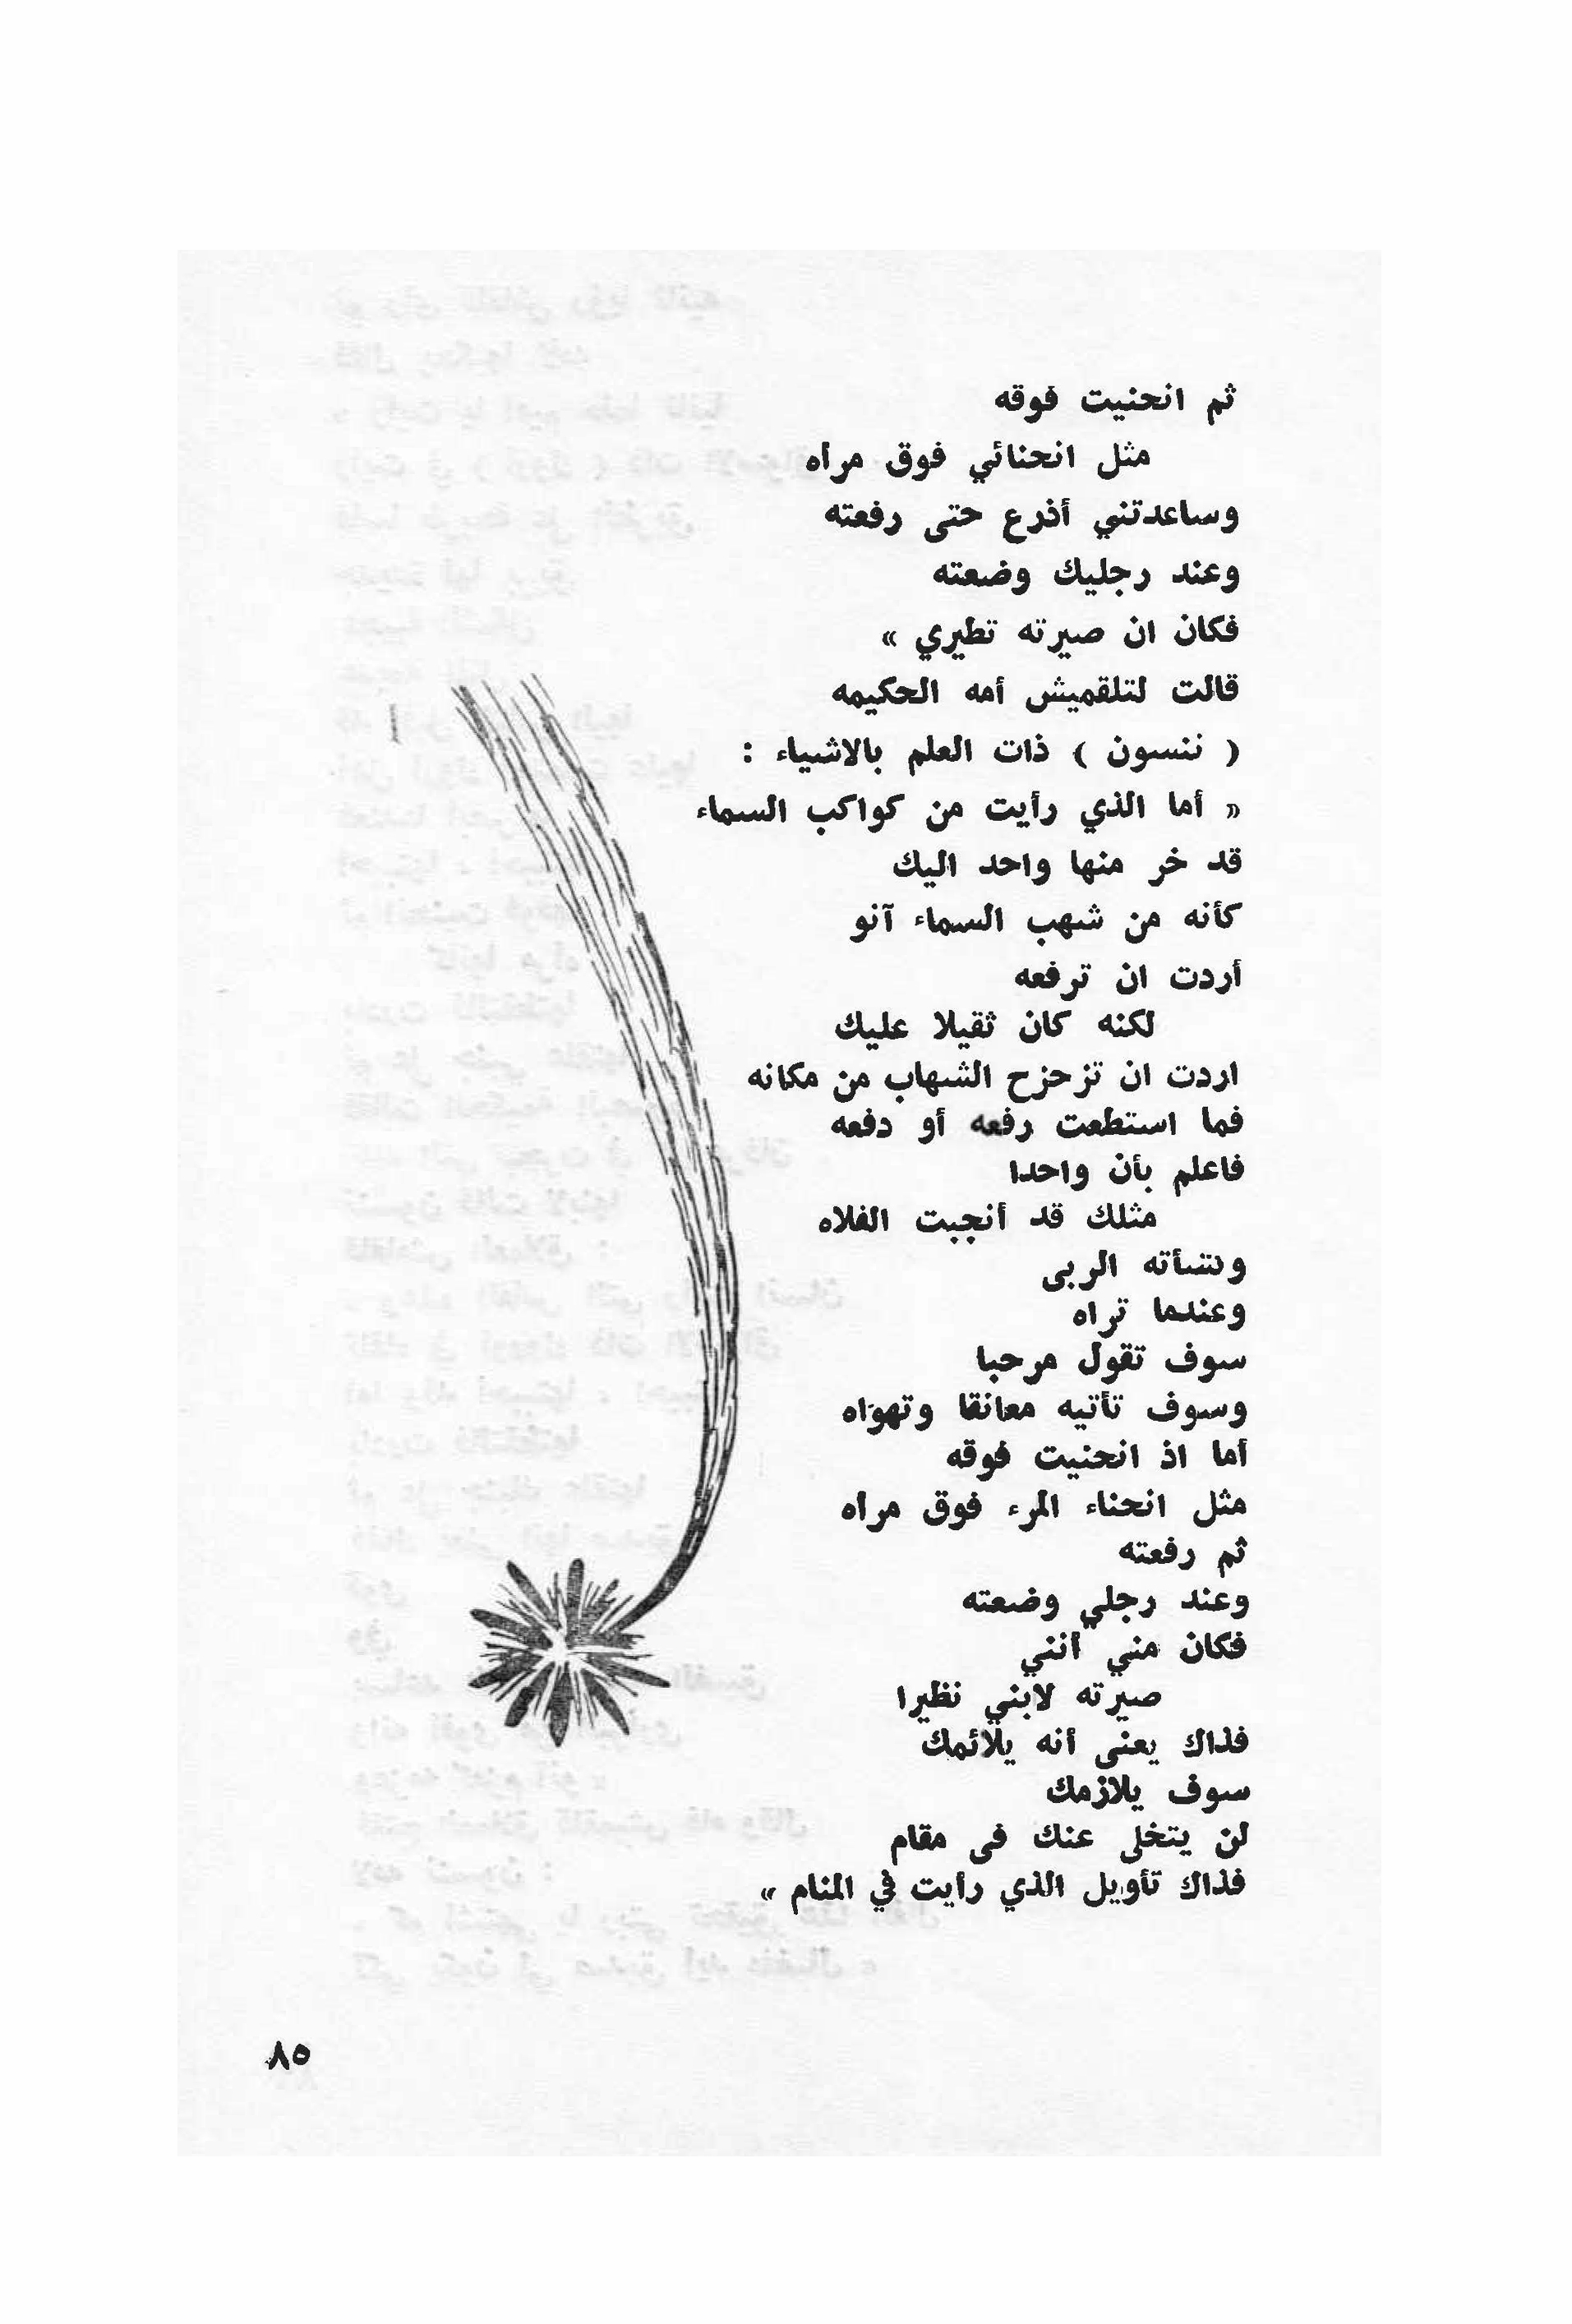 ثم انحنيت فوقه
مثل انحنائي فوق مرأه
وساعدتني أذرع حتى رفعته
وعند رجليك وضعته
فكان ان صيرته تطيري »
قالت لتلقميش أمه الحكيمه
( ننسون ) ذات العلم بالاشياء :
« أما الذي رأيت من كواكب السماء
قد خر منها واحد اليك
كأنه من شهب السماء آنو
أردت ان ترفعه
لكنه كان ثقيلا عليك
اردت ان تزحزح الشهاب من مكانه
فما استطعت رفعه أو دفعه
فاعلم بأن واحدا
مثلك قد أنجبت الفلاه
ونشأته الربى
وعندما تراه
سوف تقول مرحبا
وسوف تأتيه معانقا وتهواه
أما اذ انحنيت فوقه
مثل انحناء المرء فوق مرأه
ثم رفعته
وعند رجلي وضعته
فكان مني أنني
صيرته لابني نظيرا
فذاك يعنى أنه يلائمك
سوف يلازمك
لن يتخلى عنك فى مقام
فذاك تأويل الذي رأيت في المنام »
٨٥